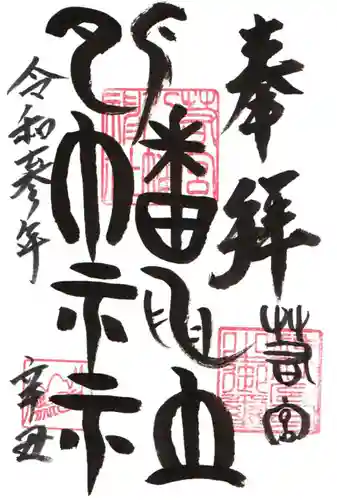 奉拝
八幡神社
令和参年
辛丑